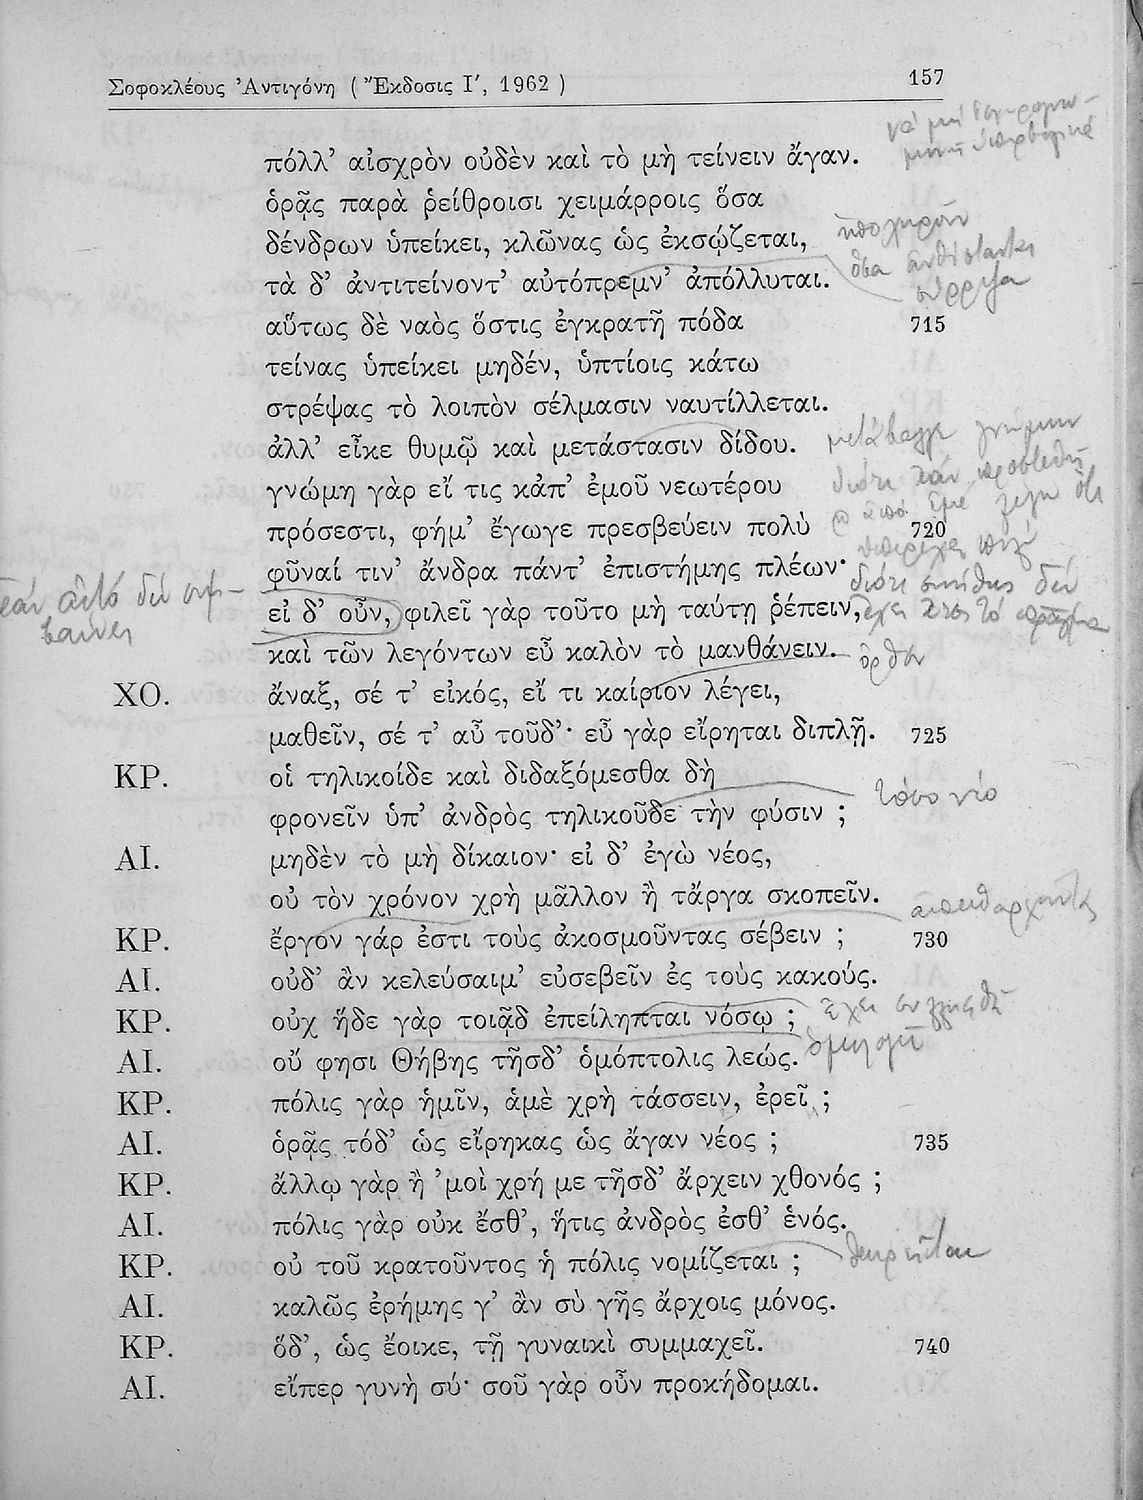 Σοφοκλέους Ἀντιγόνη ( Ἔκδοσις Ι΄, 1962 ) 157
πόλλ’ αἰσχρὸν οὐδὲν καὶ τὸ μὴ τείνειν ἄγαν.
ὁρᾷς παρὰ ῥείθροισι χειμάρροις ὅσα
δένδρων ὑπείκει, κλῶνας ὡς ἐκσῴζεται,
ὑποχωροῦν
τὰ δ’ ἀντιτείνοντ’ αὐτόπρεμν’ ἀπόλλυται.
ὅσα ἀνθίσταται
σύρριζα
αὕτως δὲ ναὸς ὅστις ἐγκρατῆ πόδα 715
τείνας ὑπείκει μηδέν, ὑπτίοις κάτω
στρέψας τὸ λοιπὸν σέλμασιν ναυτίλλεται.
ἀλλ’ εἶκε θυμῷ καὶ μετάστασιν δίδου.
μετάβαλλε γνώμην
γνώμη γὰρ εἴ τις κἀπ’ ἐμοῦ νεωτέρου
πρόσεστι, φήμ’ ἔγωγε πρεσβεύειν πολὺ 720
φῦναί τιν’ ἄνδρα πάντ’ ἐπιστήμης πλέων·
εἰ δ’ οὖν, φιλεῖ γὰρ τοῦτο μὴ ταύτῃ ῥέπειν,
ἐὰν αὐτὸ δὲν συμ-
βαίνει
διότι συνήθως δὲν
ἔχει ἔτσι τὸ πρᾶγμα
καὶ τῶν λεγόντων εὖ καλὸν τὸ μανθάνειν.
ΧΟ. ἄναξ, σέ τ’ εἰκός, εἴ τι καίριον λέγει,
ὀρθὸν
μαθεῖν, σέ τ’ αὖ τοῦδ’· εὖ γὰρ εἴρηται διπλῇ. 725
ΚΡ. οἱ τηλικοίδε καὶ διδαξόμεσθα δὴ
φρονεῖν ὑπ’ ἀνδρὸς τηλικοῦδε τὴν φύσιν ;
τόσο νέο
ΑΙ. μηδὲν τὸ μὴ δίκαιον· εἰ δ’ ἐγὼ νέος,
οὐ τὸν χρόνον χρὴ μᾶλλον ἢ τἄργα σκοπεῖν.
ΚΡ. ἔργον γάρ ἐστι τοὺς ἀκοσμοῦντας σέβειν ; 730
ἀπειθαρχοῦντας
ΑΙ. οὐδ’ ἂν κελεύσαιμ’ εὐσεβεῖν ἐς τοὺς κακούς.
ΚΡ. οὐχ ἥδε γὰρ τοιᾷδ ἐπείληπται νόσῳ ;
ἔχει συλληφθῆ
ΑΙ. οὔ φησι Θήβης τῆσδ’ ὁμόπτολις λεώς.
ΚΡ. πόλις γὰρ ἡμῖν, ἁμὲ χρὴ τάσσειν, ἐρεῖ ;
ΑΙ. ὁρᾷς τόδ’ ὡς εἴρηκας ὡς ἄγαν νέος ; 735
ΚΡ. ἄλλῳ γὰρ ἢ ’μοὶ χρή με τῆσδ’ ἄρχειν χθονός ;
ΑΙ. πόλις γὰρ οὐκ ἔσθ’, ἥτις ἀνδρὸς ἐσθ’ ἑνός.
ΚΡ. οὐ τοῦ κρατοῦντος ἡ πόλις νομίζεται ;
θεωρεῖται
ΑΙ. καλῶς ἐρήμης γ’ ἂν σὺ γῆς ἄρχοις μόνος.
ΚΡ. ὅδ’, ὡς ἔοικε, τῇ γυναικὶ συμμαχεῖ. 740
ΑΙ. εἴπερ γυνὴ σύ· σοῦ γὰρ οὖν προκήδομαι.